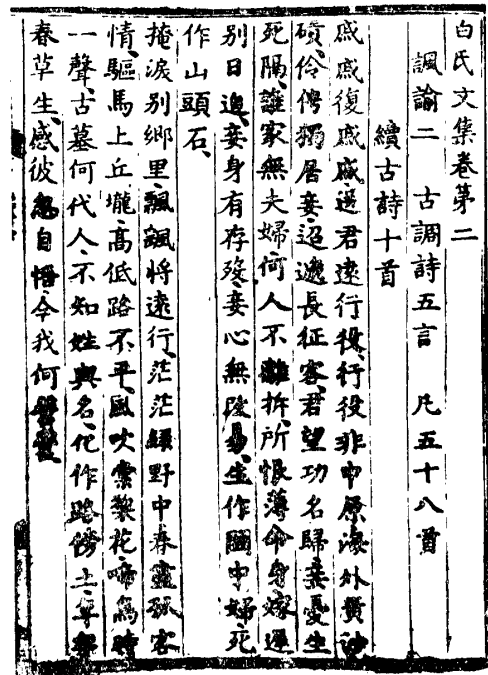 白氏文集卷第二
諷諭二　古調詩五言　凡五十八首
續古詩十首
戚戚復戚戚、送君遠行役、行役非中原、海外黃沙
磧、伶俜獨居妾、迢遞長征客、君望功名歸、妾憂生
死隔、誰家無夫婦、何人不離拆、所恨薄命身、嫁遲
別日迫、妾身有存歿、妾心無改易、生作閨中婦、死
作山頭石、
掩淚別鄉里、飄颻將遠行、茫茫綠野中、春盡孤客
情、驅馬上丘壠、高低路不平、風吹棠梨花、啼鳥時
一聲、古墓何代人、不知姓與名、化作路傍土、年年
春草生、感彼忽自悟、今我何營營、